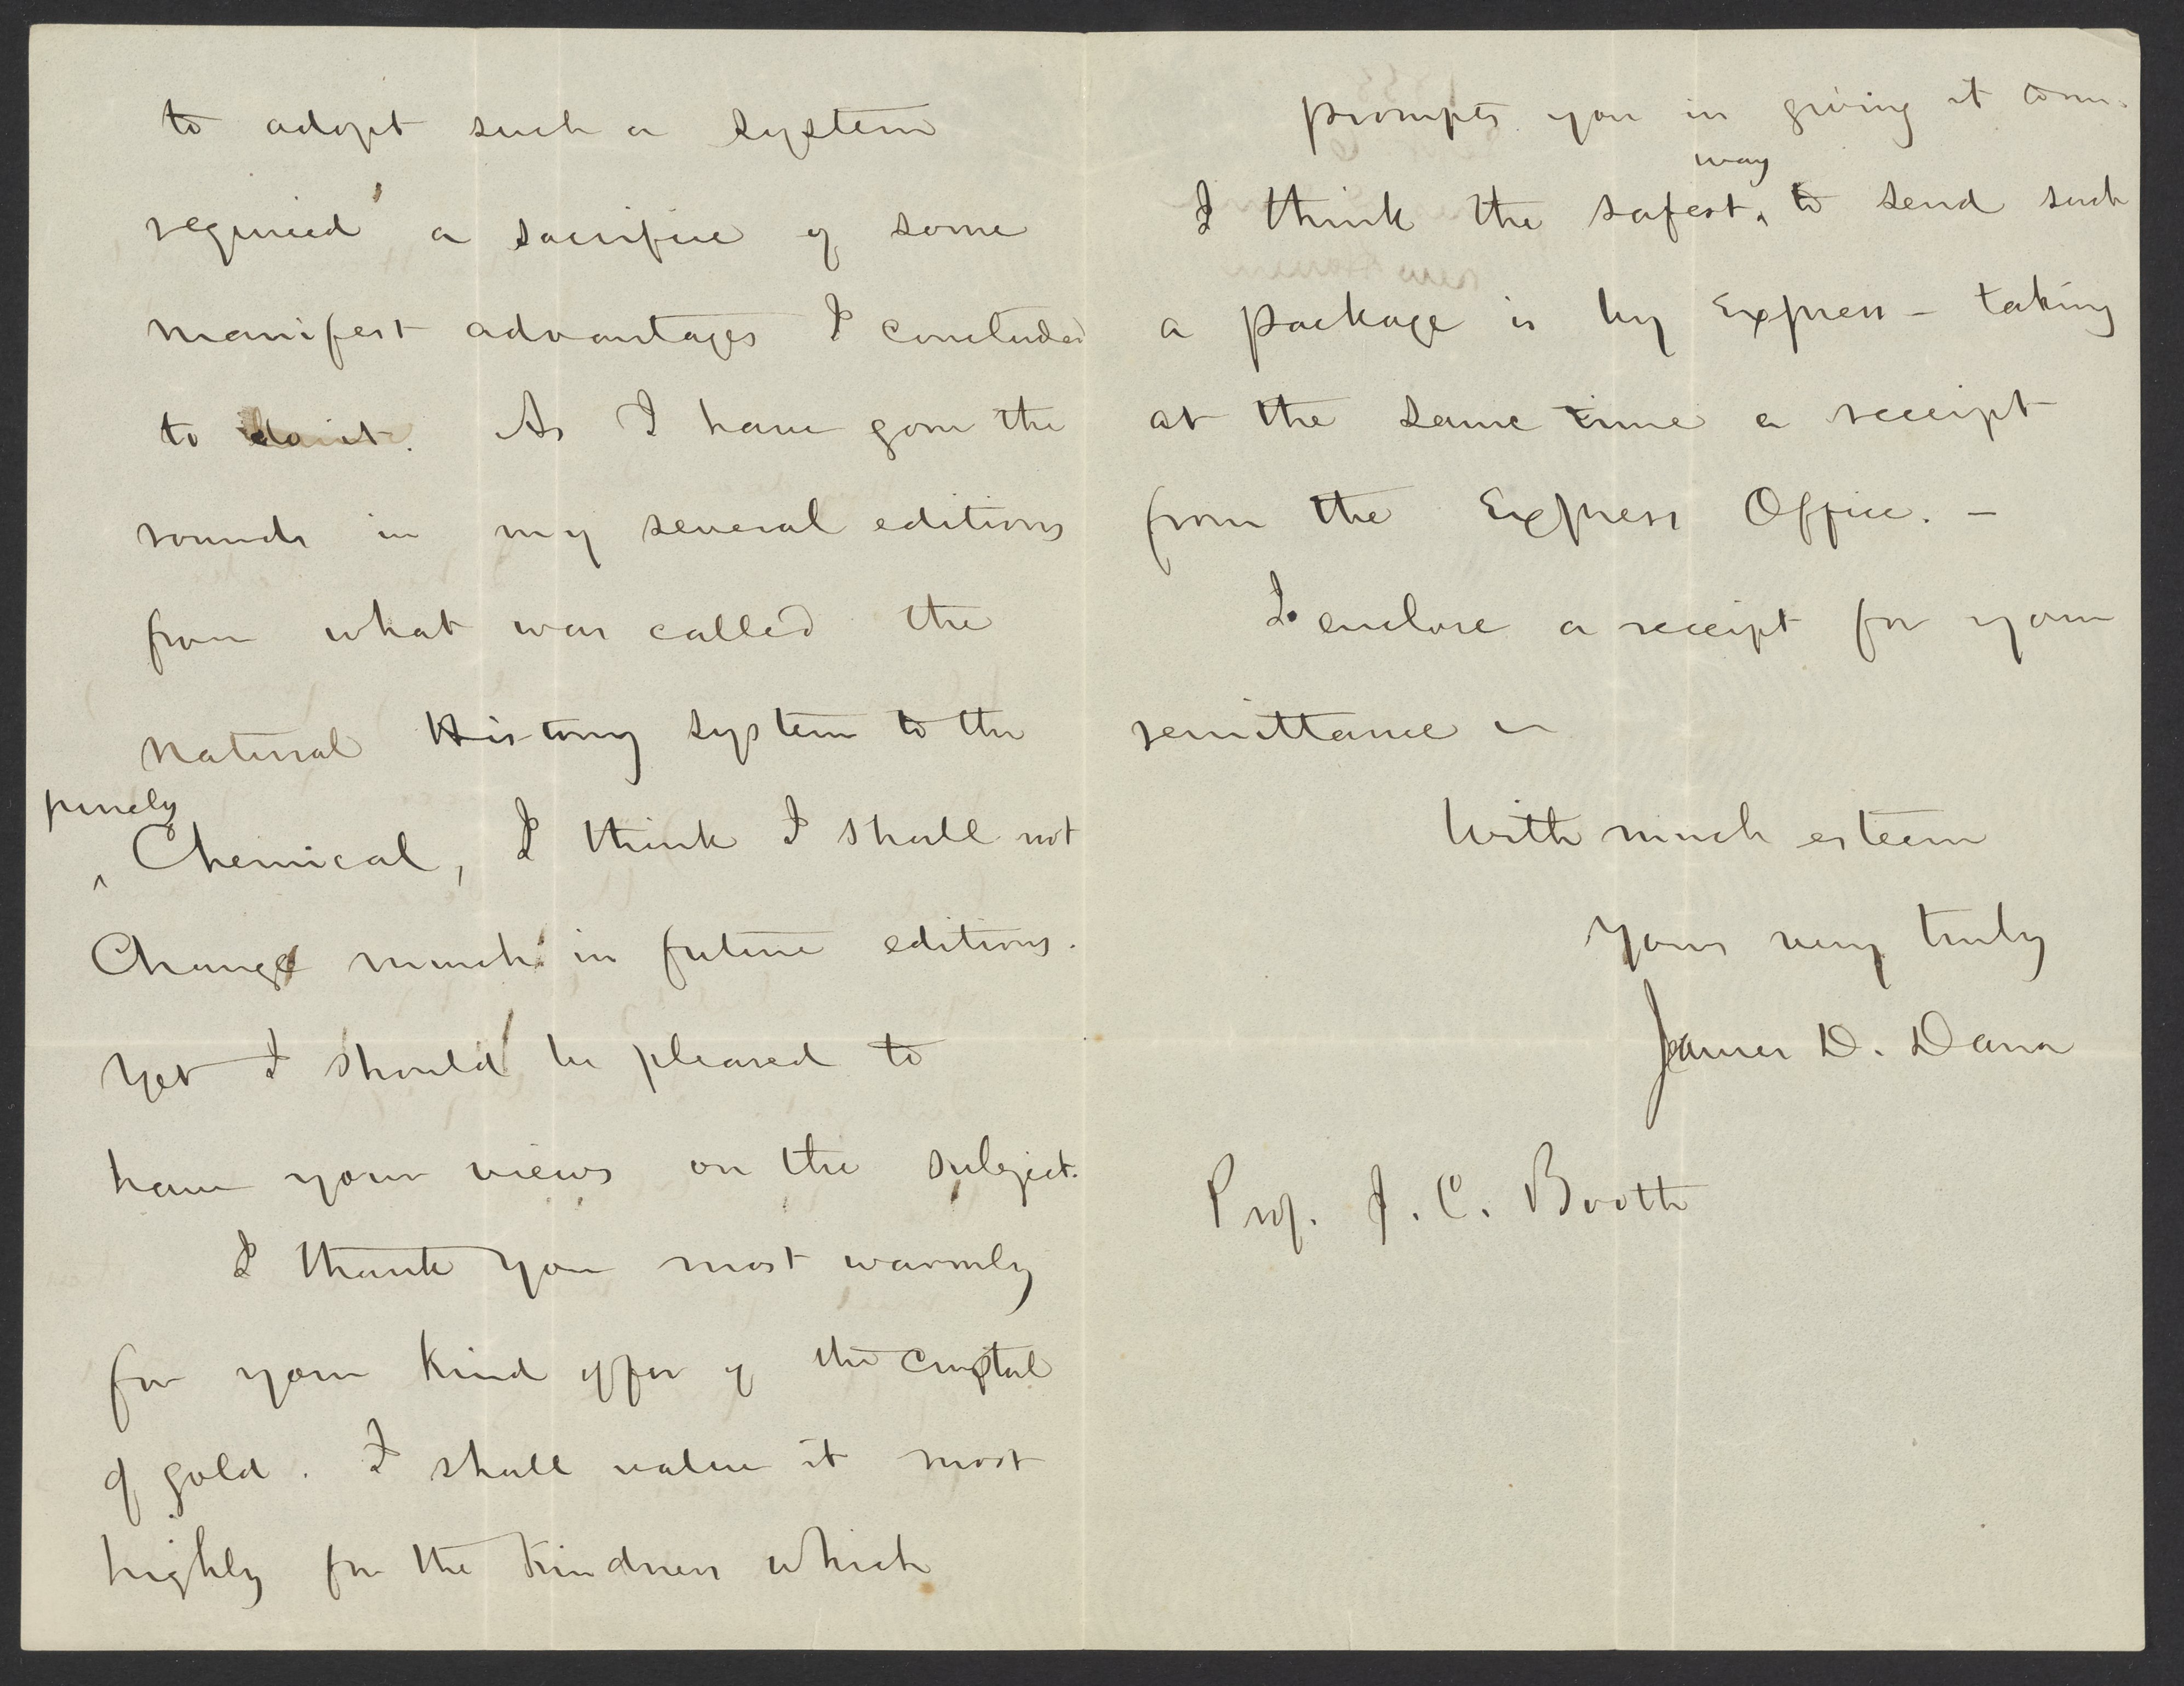 to adopt such a system
required a sacrifice of some
manifest advantages I concluded
to do it. As I have gone the
rounds in my several editions
from what was called the
Natural History System to the
purely
‸ Chemical, I think I shall not
Change much in future editions.
Yet I should be pleased to
have your views on the subject.
I thank you most warmly
for your kind offer of the crystal
of gold. I shall value it most
highly for the kindness which
prompts you in giving it
way
I think the safest ‸ to send such
a package is by Express – taking
at the same time a receipt
from the Express Office. –
I enclose a receipt for your
remittance
With much esteem
Yours very truly
James D. Dana
Prof. J. C. Booth